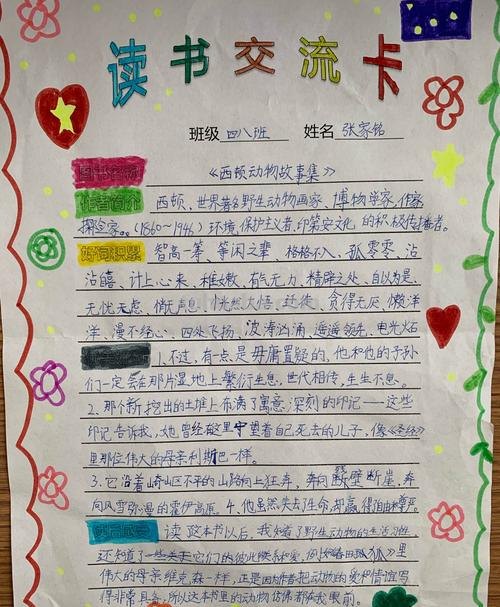 读书交流卡
班级 四八班 姓名 张家铭
图书名称 《西顿动物故事集》
作者简介 西顿，世界著名野生动物画家、博物学家、作家
探险家。(1860~1946)环境保护主义者，印第安文化的积极传播者。
好词积累 智高一筹、等闲之辈、格格不入、孤零零、沾
沾自喜、计上心来、稚嫩、有气无力、精辟之处、自以为是、
无忧无虑、悄无声息、恍然大悟、迁徙、贪得无厌、懒洋
洋、漫不经心、四处飞扬、波涛汹涌、遥遥领先、电光火石
1、不过，有一点是毋庸置疑的，他和他的子孙
们一定会在那片湿地上繁衍生息，世代相传，生生不息。
2、那个新挖出的土堆上布满了寓意深刻的印记——这些
印记告诉我，她曾经在这里守望着自己死去的儿子，像《圣经》
里那位伟大的母亲利斯巴一样。
3、它沿着崎岖不平的山路向上狂奔，奔向断壁断崖，奔
向风雪弥漫的霍伊高原 4、他虽然失去了生命，却赢得自由和尊严。
读后感受 读这本书以后，我知道了野生动物的生活习性，
还知道了一些关于它们的彼此联系和爱，例如春田狐》里
伟大的母亲维克森一样，正是因为作者把动物的爱和情谊写
得非常具备，所以这本书里的动物仿佛都在我眼前。